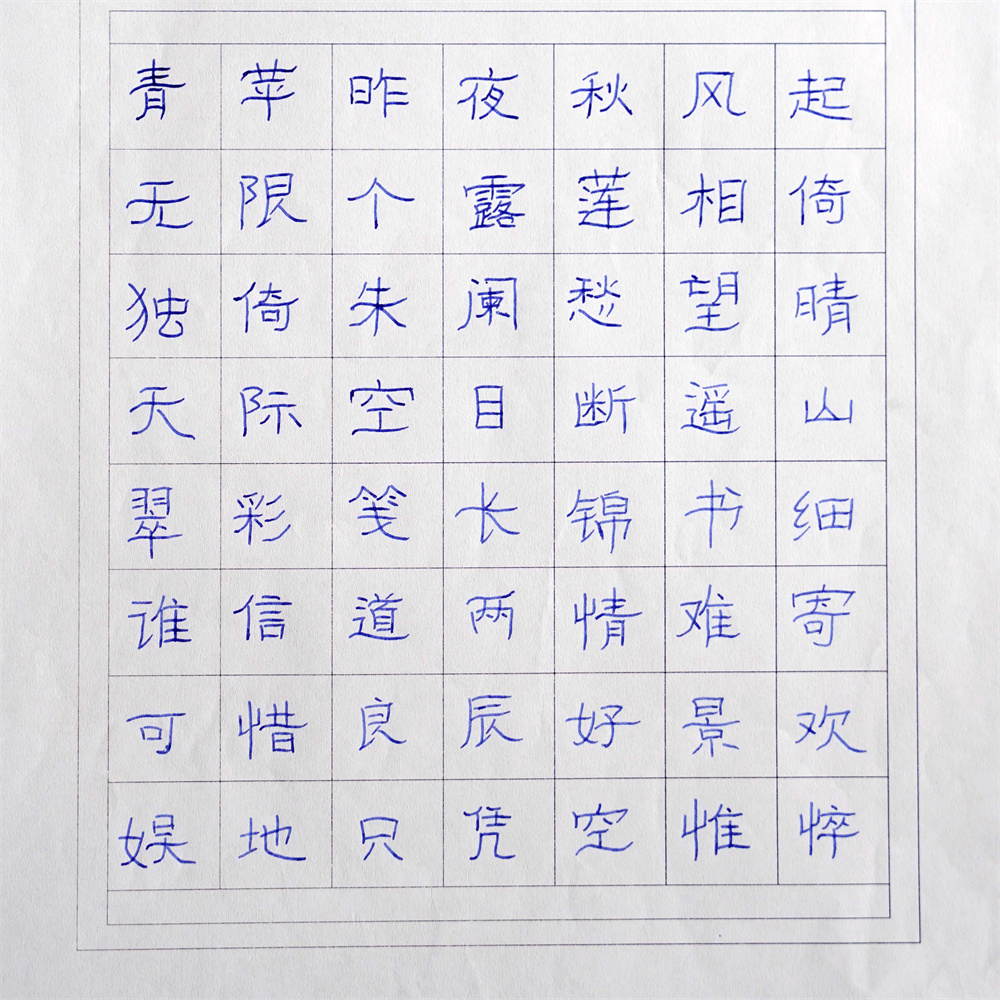 青苹昨夜秋风起
无限个露莲相倚
独倚朱阑愁望晴
天际空目断遥山
翠彩笺长锦书细
谁信道两情难寄
可惜良辰好景欢
娱地只凭空惟悴